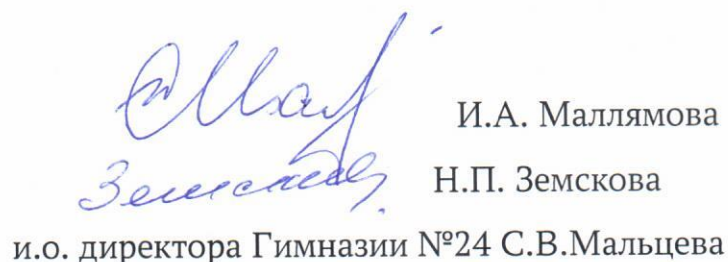 И.А. Маллямова
Земскова Н.П. Земскова
и.о. директора Гимназии №24 С.В.Мальцева